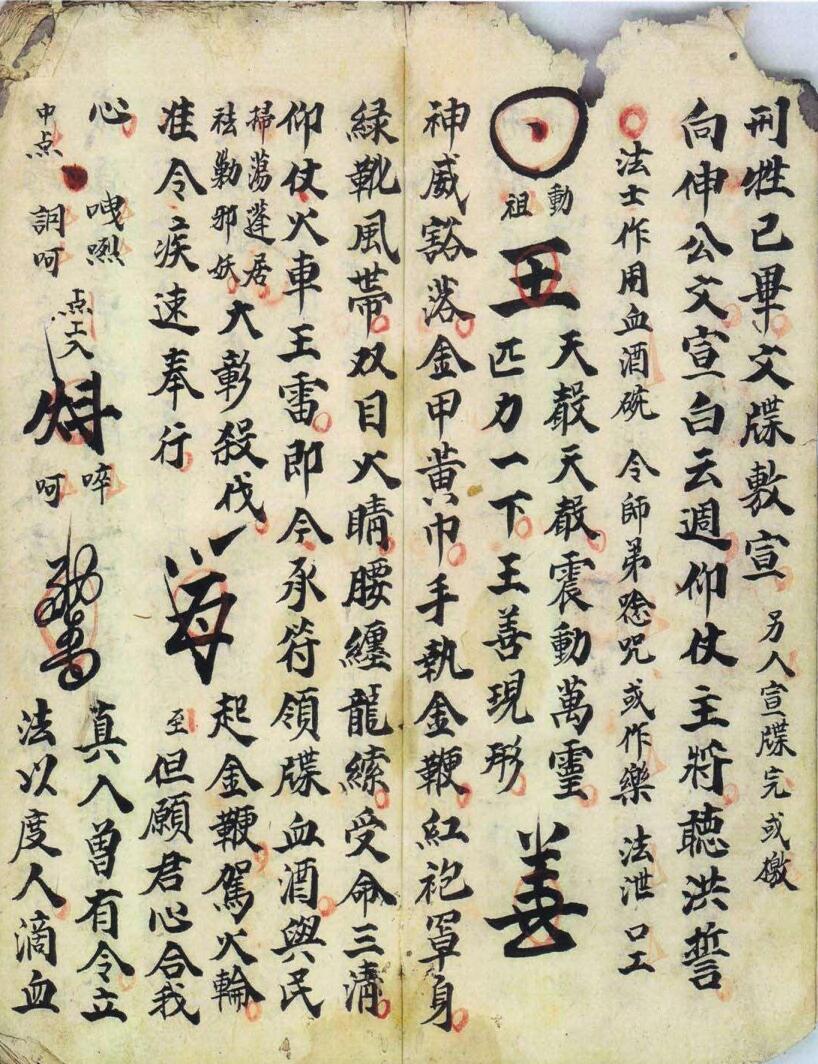 刑牲已畢文牒敷宣 另人宣牒完或檄
向伸公文宣白云週仰仗主將聽洪誓
法士作用血酒碗 令師弟唸咒或作樂 法泄口工
動祖
王 天殽天殽震動萬霊
匹力一下王善現形 善
神威豁落金甲黃巾手執金鞭紅袍罩身
緑靴風帶双目火睛腰纏龍繚受命三清
仰仗火車王雷即令承符領牒血酒與民
掃蕩蓬居
祛勦邪妖大彰殺伐 起金鞭駕火輪
准令疾速奉行 至但願君心合我
心 㖂㘁 点工入 啐 真入曾有令立
中点 詗呵 呵 法以度人滴血